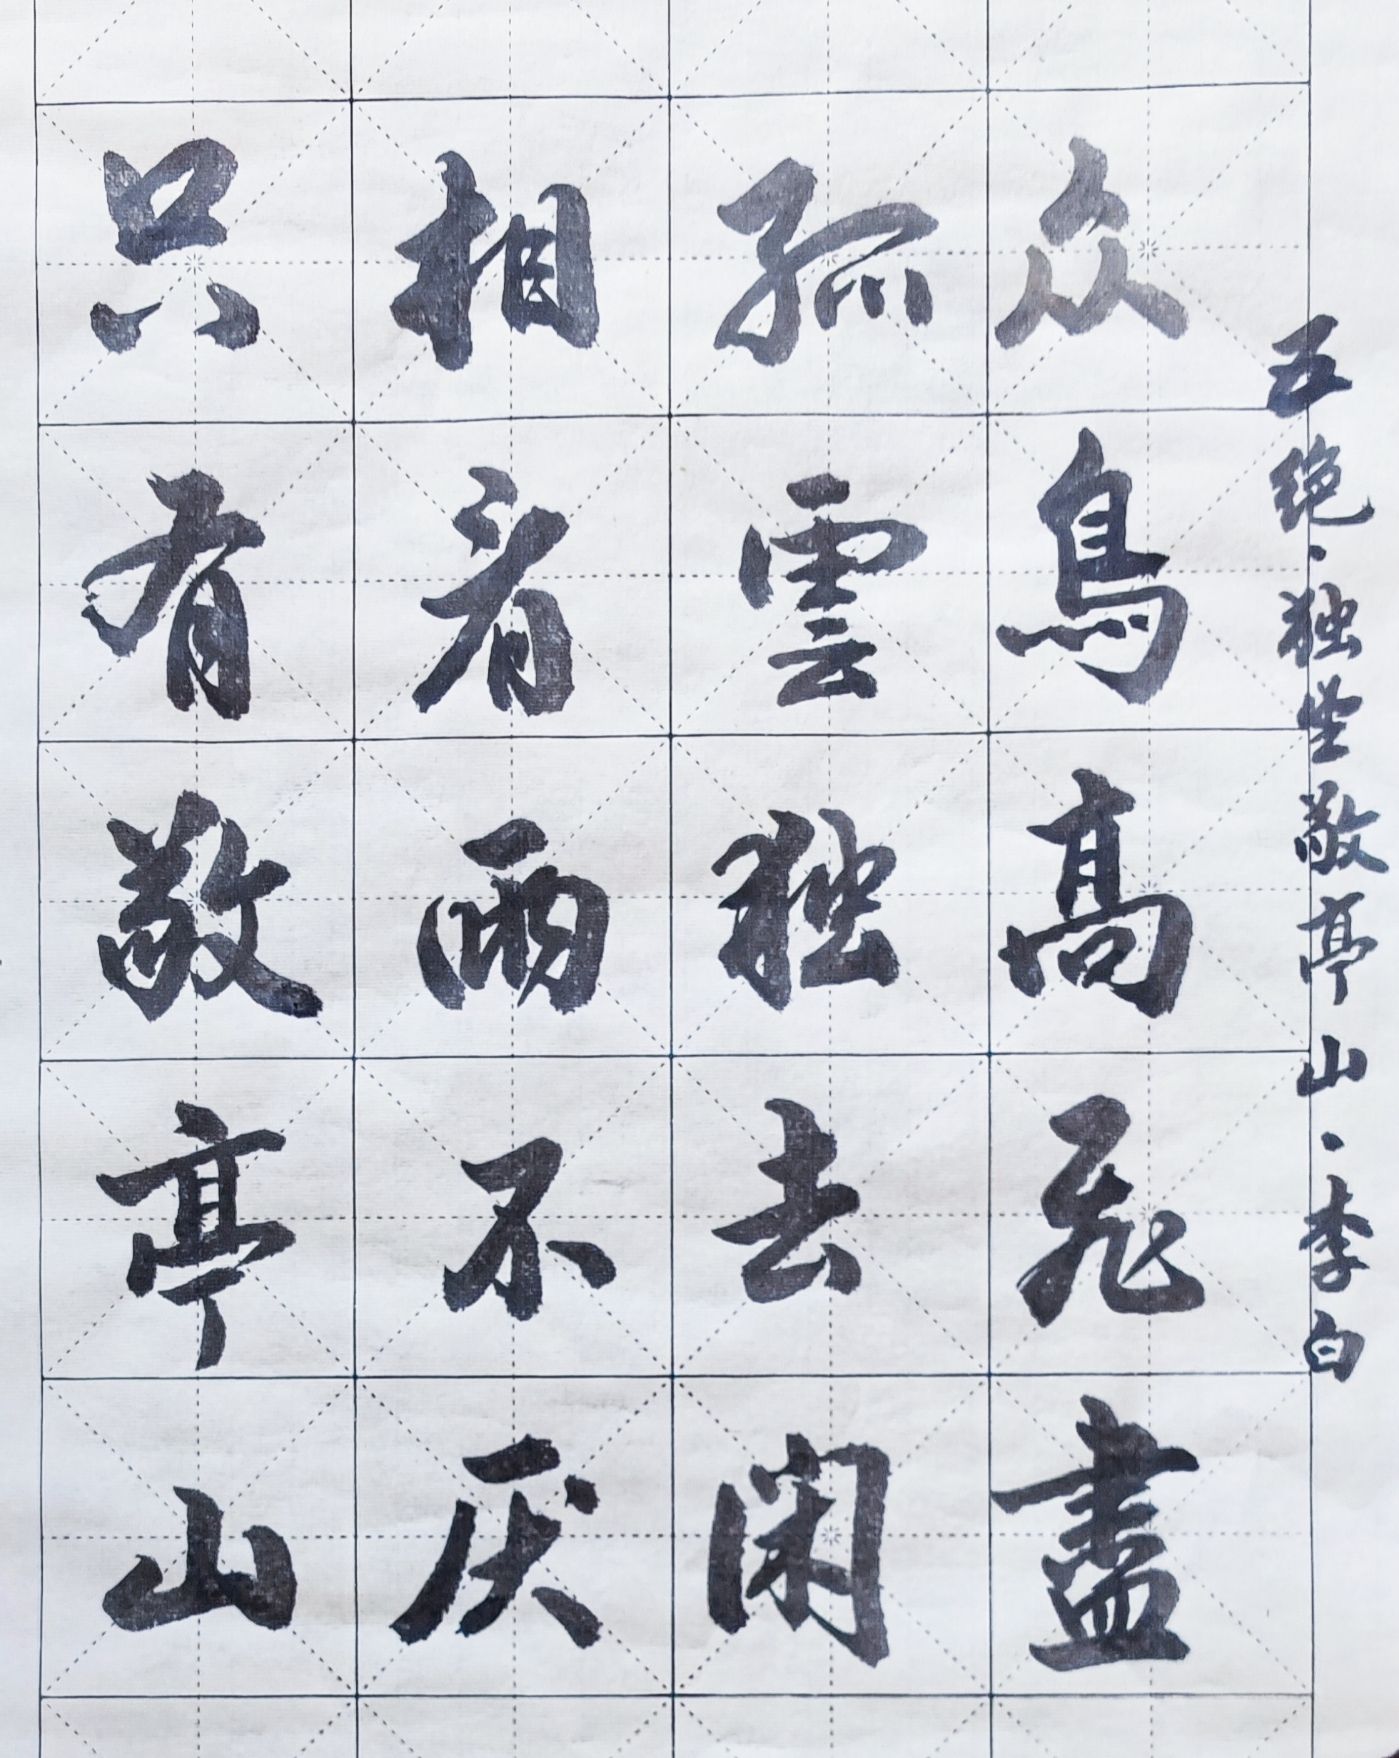 五绝·独坐敬亭山·李白
众鳥高飛盡
孤雲独去闲
相看两不厌
只有敬亭山